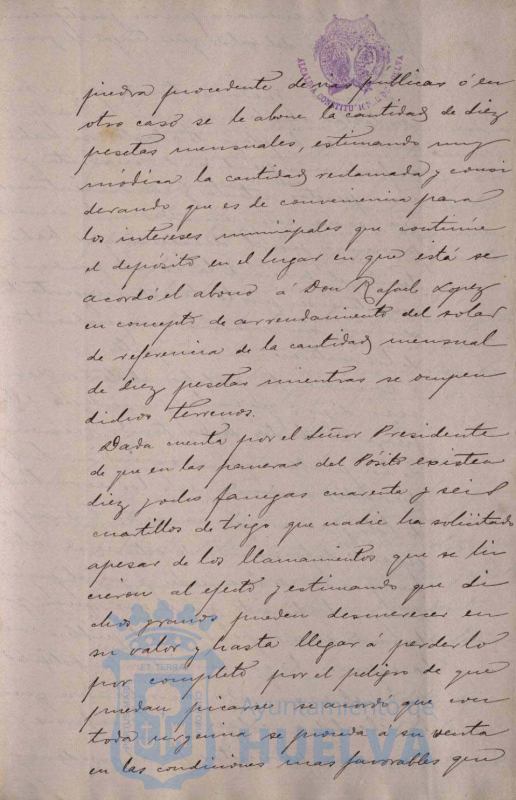 piedra procedente de vias públicas ó en
otro caso se le abone la cantidad de diez
pesetas mensuales, estimando muy
módica la cantidad reclamada y consi
derando que es de conveniencia para
los intereses municipales que continúe
el depósito en el lugar en que está se
acordó el abono á Don Rafael López
en concepto de arrendamiento del solar
de referencia de la cantidad mensual
de diez pesetas mientras se ocupen
dichos terrenos.
Dada cuenta por el Señor Presidente
de que en las paneras del Pósito existen
diez y ocho fanegas cuarenta y seis
cuartillos de trigo que nadie ha solicitado
apesar de los llamamientos que se hi
cieron al efecto y estimando que di
chos granos pueden desmerecer en
su valor y hasta llegar á perderlo
por completo por el peligro de que
puedan picarse se acordó que con
toda urgencia se proceda á su venta
en las condiciones mas favorables que
Ayuntamiento de
HUELVA